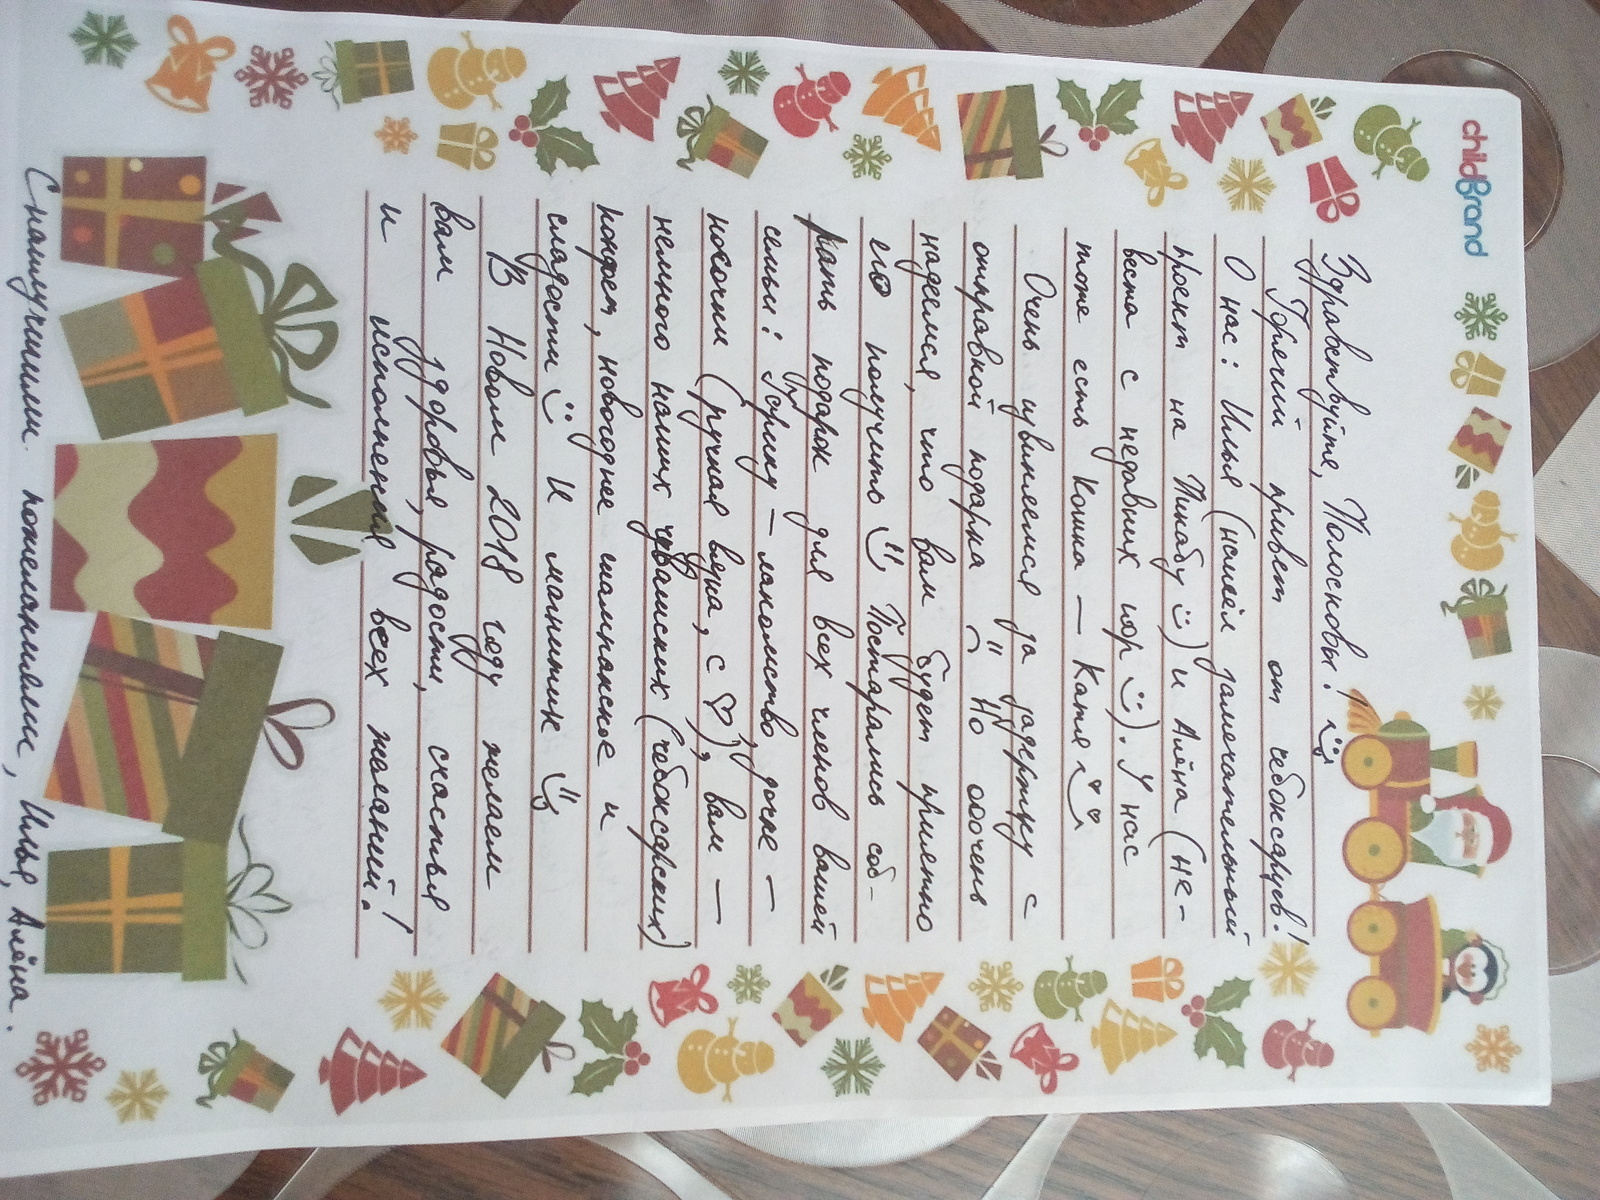 childBrand
Здравствуйте, Полосковы!
Горячий привет от чебоксарцев!
О нас: Илья (нашёл замечательный
проект на Пикабу) и Алёна (не-
веста с недавних пор). У нас
тоже есть Кошка — Катя
Очень извиняемся за задержку с
отправкой подарка Но ооочень
надеемся, что вам будет приятно
его получить Постарались соб-
рать подарок для всех членов вашей
семьи: — лакомство, дочке —
носочки (ручная вязка, с ♡), вам —
немного наших чувашских (чебоксарских)
конфет, новогоднее шампанское и
сладости И магнитик
В Новом 2018 году желаем
вам здоровья, радости, счастья
и исполнения всех желаний!
С наилучшими пожеланиями, Илья, Алёна.